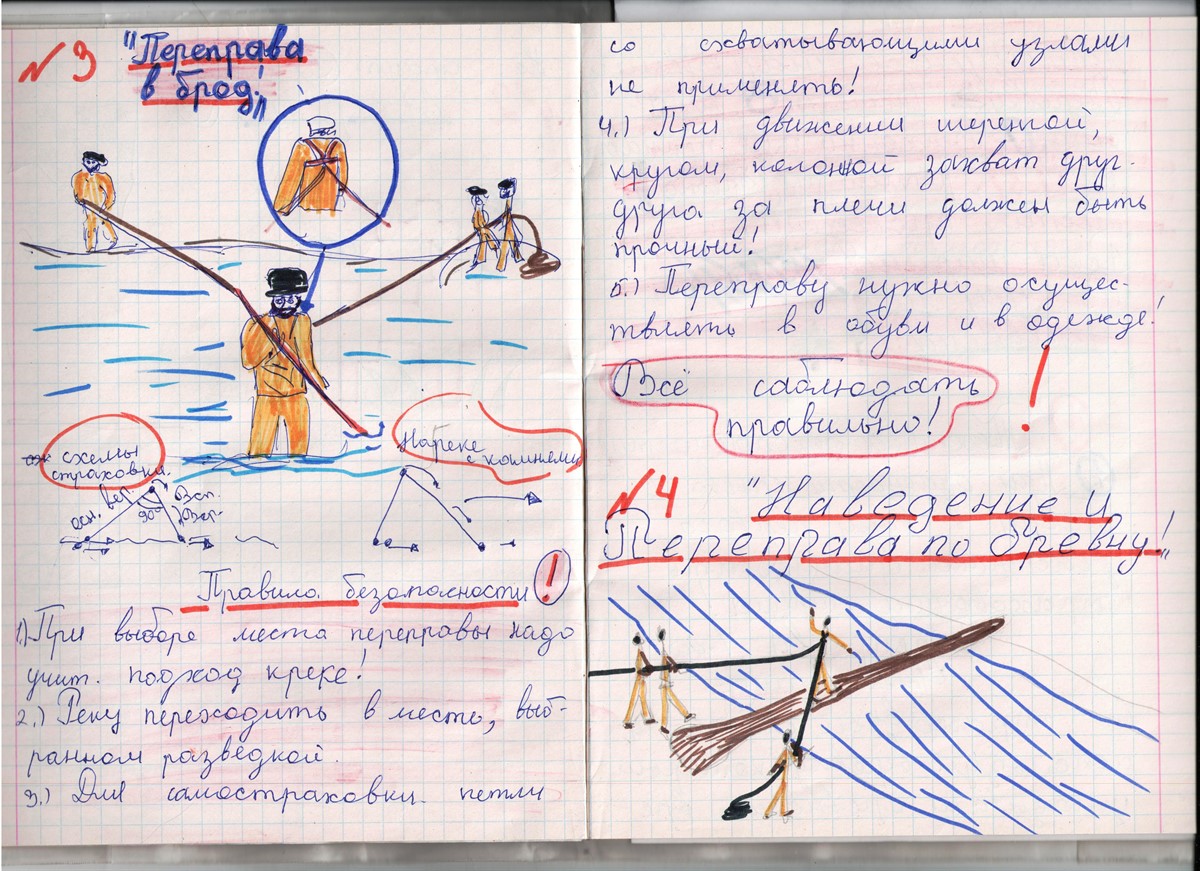 №3 "Переправа
в брод!"
схемы
страховки.
осн. вер.
Всп.
Вер.
90°
На реке
с камнями
Правила безопасности !
1) При выборе места переправы надо
учит. подход к реке!
2.) Реку переходить в месте, выб-
ранном разведкой.
3.) Для самостраховки петли
со схватывающими узлами
не применять!
4.) При движении шеренгой,
кругом, колонной захват друг-
друга за плечи должен быть
прочный!
5.) Переправу нужно осущес-
твлять в обуви и в одежде!
Всё саблюдать
правильно! !
№4 "Наведение и
Переправа по бревну!"